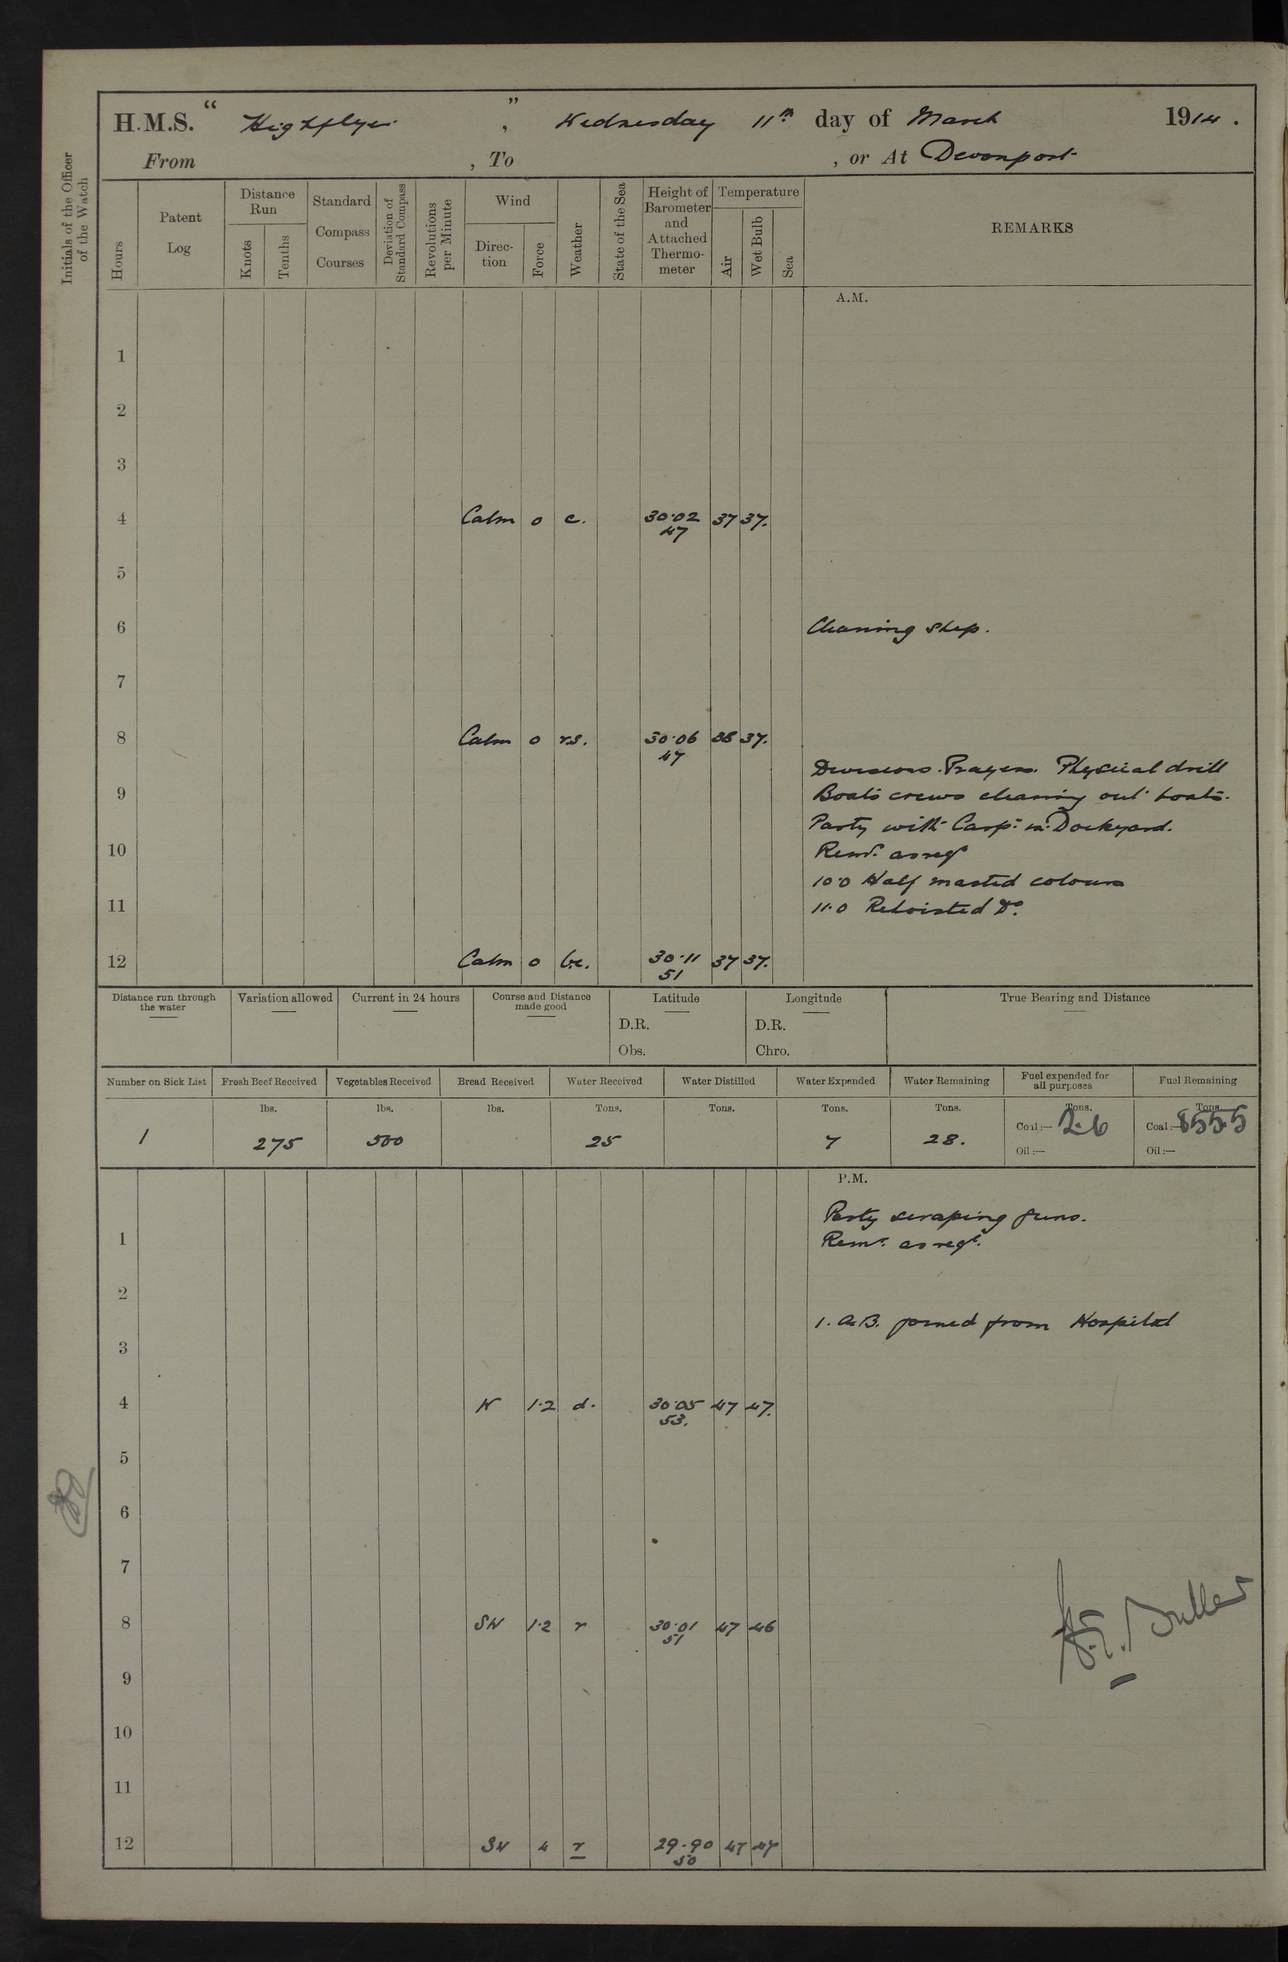 H.M.S. " Highflyer ", Wednesday 11th day of March 1914.
From , To , or At Devonport
Initials of the Officer of the Watch
Hours
Patent Log
Distance Run
Knots
Tenths
Standard Compass Courses
Deviation of Standard Compass
Revolutions per Minute
Wind
Direc-tion
Force
Weather
State of the Sea
Height of Barometer and Attached Thermo-meter
Temperature
Air
Wet Bulb
Sea
REMARKS
A.M.
1
2
3
4 Calm 0 c. 30·02 37 37.
47
5
6 Cleaning ship.
7
8 Calm 0 r.s. 30·06 38 37.
47
Divisions. Prayers. Physical drill
9 Boats crews cleaning out boats.
Party with Carpr. in Dockyard.
10 Remr. as reqd
10·0 Half masted colours
11 11·0 Rehoisted Do.
12 Calm 0 b.c. 30·11 37 37.
51
Distance run through the water
Variation allowed
Current in 24 hours
Course and Distance made good
Latitude
D.R.
Obs.
Longitude
D.R.
Chro.
True Bearing and Distance
Number on Sick List Fresh Beef Received Vegetables Received Bread Received Water Received Water Distilled Water Expended Water Remaining Fuel expended for all purposes Fuel Remaining
lbs. lbs. lbs. Tons. Tons. Tons. Tons. Tons. Tons.
1 275 500 25 7 28. Coal:— 2·6 Coal:— 855·5
Oil:— Oil:—
P.M.
Party scraping funs.
1 Remr. as reqd.
2
1. A.B. joined from Hospital
3
4 W 1·2 d. 30·05 47 47.
53.
5
6
7
8 SW 1·2 r 30·01 47 46
51
9
10
11
12 SW 4 r 29·90 47 47
50